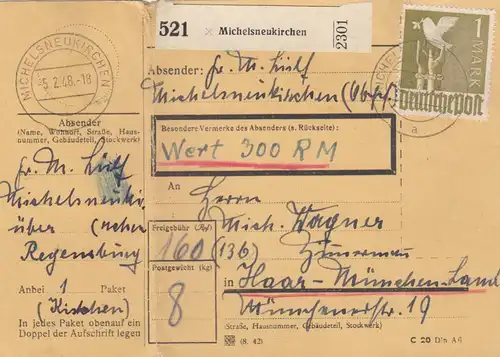 521 Michelsneukirchen 2301
MICHELSNEUKIRCHEN
-5.2.48.-18
1 MARK
Deutsche Post
a
Absender: Fr. M.
Michelsneukirchen (Obpf.)
Besondere Vermerke des Absenders (s. Rückseite):
Wert 300 RM
An Herrn
Mich. Wagner
Zimmerman
in Haar-München-Land
19
(Straße, Hausnummer, Gebäudeteil, Stockwerk)
(8. 42)
C 20 Din A6
Absender
(Name, Wohnort, Straße, Haus-
nummer, Gebäudeteil, Stockwerk)
Fr. M.
Michelsneuki
über
Regensburg
Anbei 1 Paket
In jedes Paket obenauf ein
Doppel der Aufschrift legen
Freigebühr (Rpf)
160 (13b)
Postgewicht (kg)
8